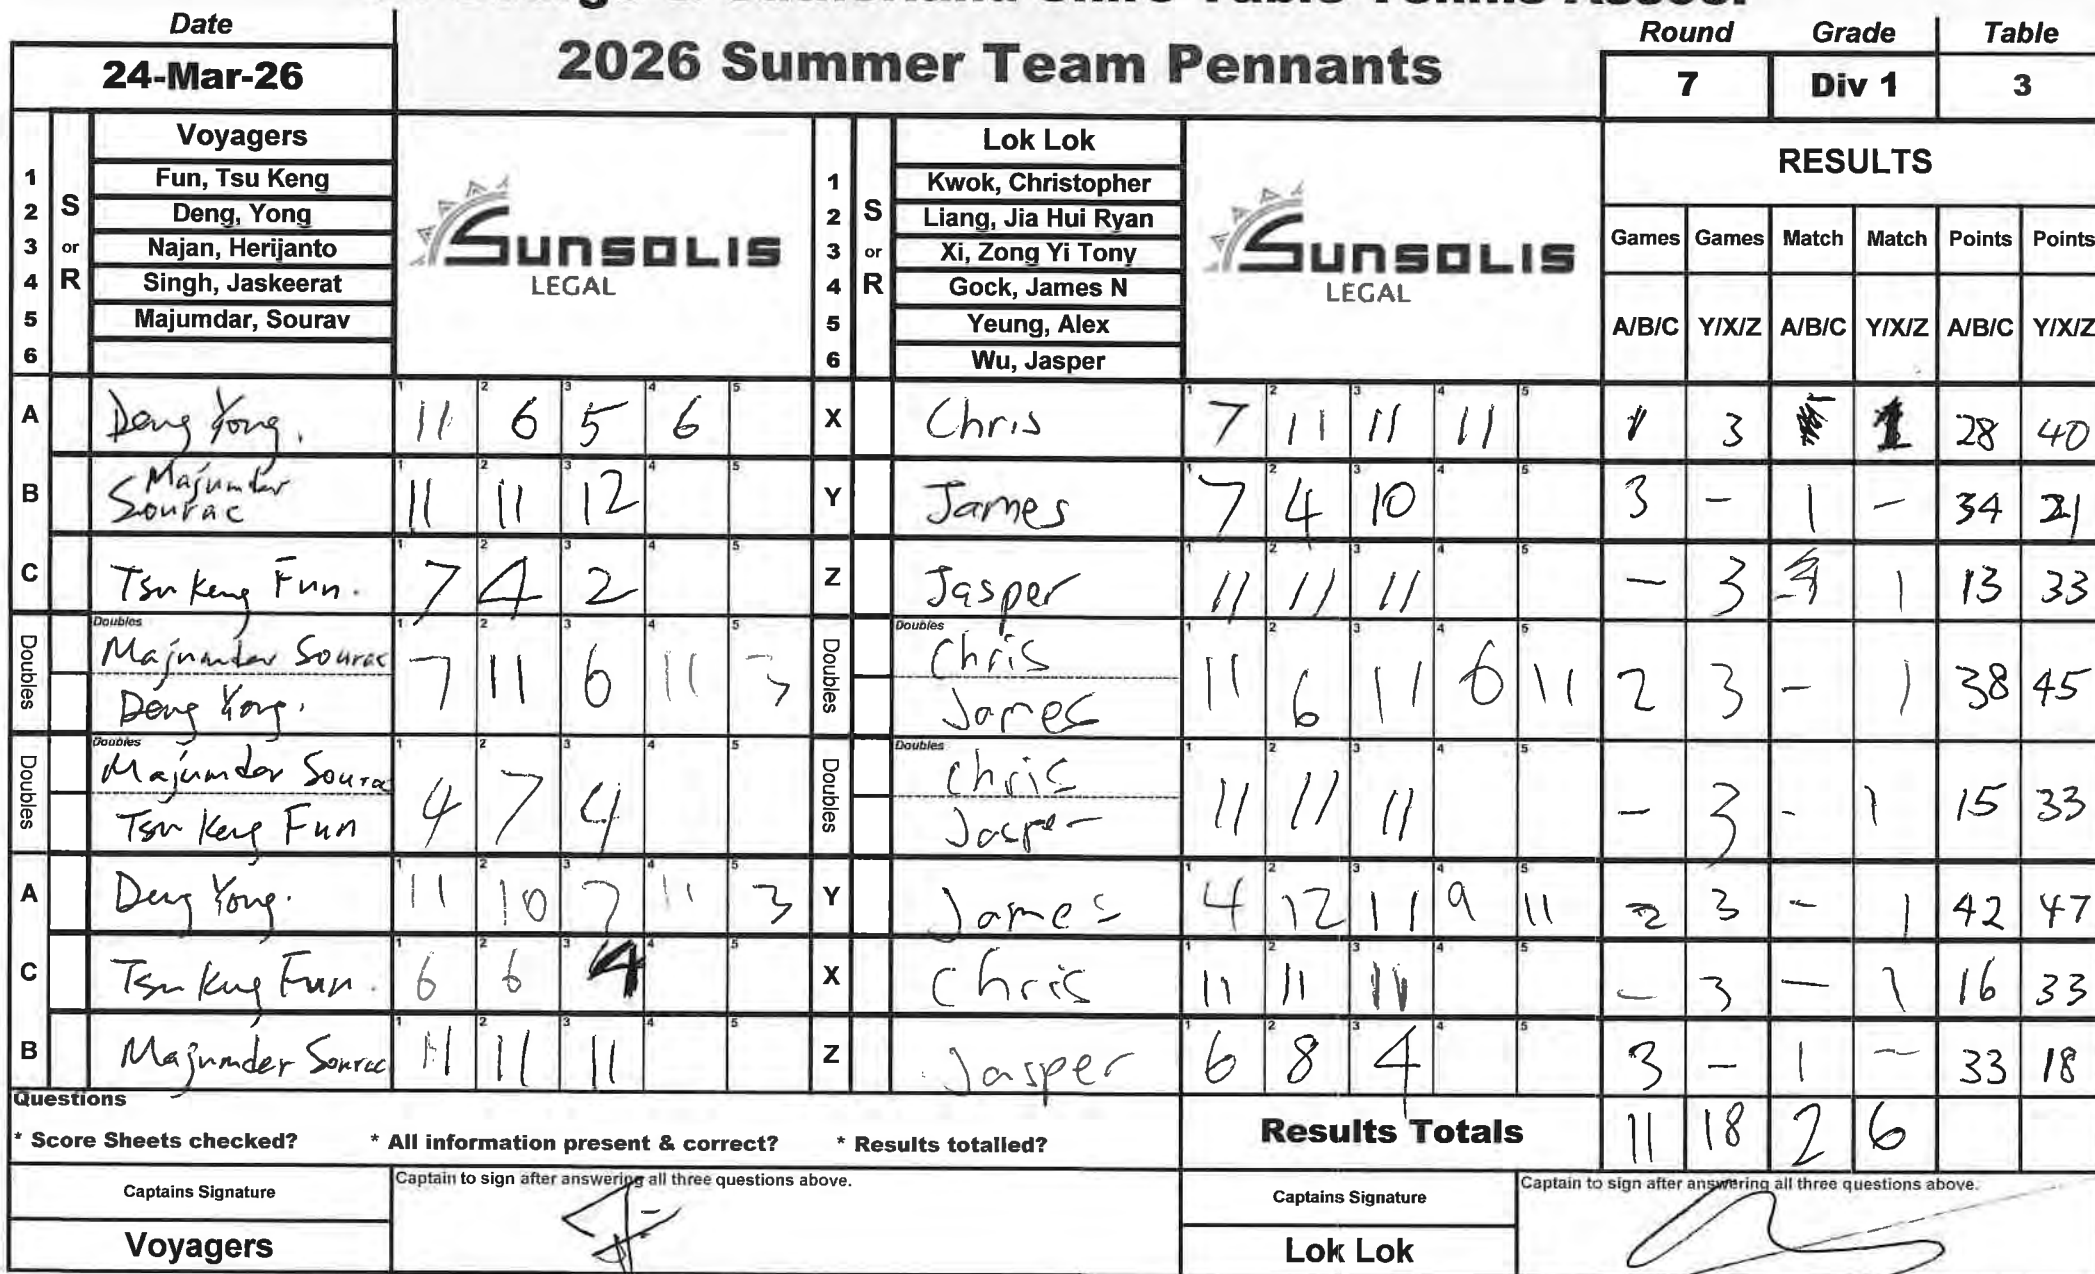 Date
24-Mar-26
2026 Summer Team Pennants
Round Grade Table
7 Div 1 3
Voyagers
1 Fun, Tsu Keng
2 Deng, Yong
3 Najan, Herijanto
4 Singh, Jaskeerat
5 Majumdar, Sourav
6
S or R
SUNSOLIS
LEGAL
Lok Lok
1 Kwok, Christopher
2 Liang, Jia Hui Ryan
3 Xi, Zong Yi Tony
4 Gock, James N
5 Yeung, Alex
6 Wu, Jasper
S or R
SUNSOLIS
LEGAL
RESULTS
Games Games Match Match Points Points
A/B/C Y/X/Z A/B/C Y/X/Z A/B/C Y/X/Z
A Deng Yong. 11 6 5 6 X Chris 7 11 11 11 1 3 1 28 40
B Majumder Sourac 11 11 12 Y James 7 4 10 3 - 1 - 34 21
C Tsu Keng Fun. 7 4 2 Z Jasper 11 11 11 - 3 1 13 33
Doubles Majumder Sourac Deng Yong. 7 11 6 11 7 Doubles Chris James 11 6 11 6 11 2 3 - 1 38 45
Doubles Majumder Sourac Tsu Keng Fun 4 7 4 Doubles Chris Jasper 11 11 11 - 3 - 1 15 33
A Deng Yong. 11 10 7 11 3 Y James 4 12 11 9 11 2 3 - 1 42 47
C Tsu Keng Fun. 6 6 4 X Chris 11 11 11 - 3 - 1 16 33
B Majumder Sourac 11 11 11 Z Jasper 6 8 4 3 - 1 - 33 18
Questions
* Score Sheets checked? * All information present & correct? * Results totalled?
Results Totals 11 18 2 6
Captains Signature
Captain to sign after answering all three questions above.
Voyagers
Captains Signature
Captain to sign after answering all three questions above.
Lok Lok